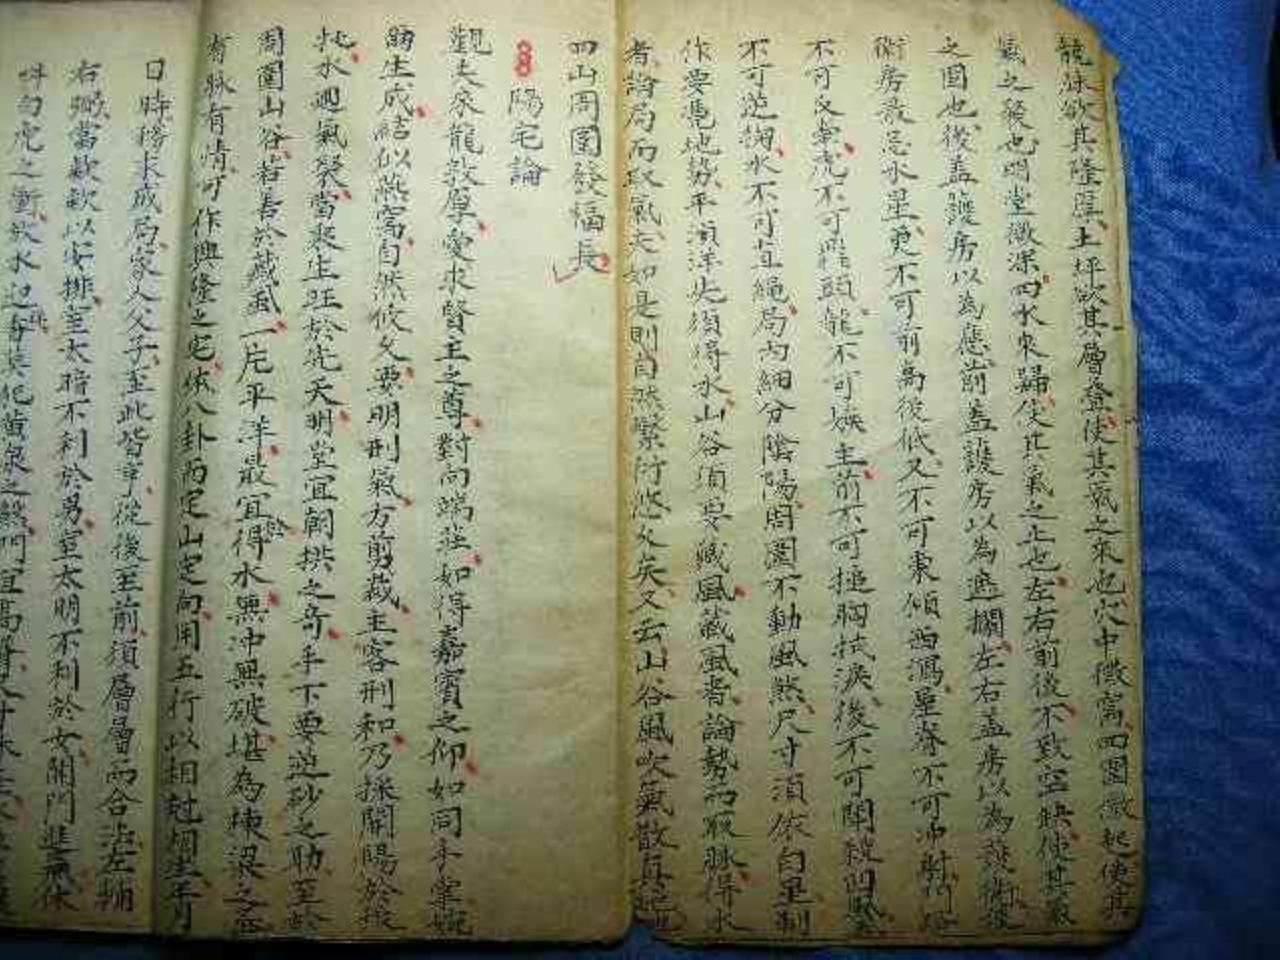 龍脉欲其隆厚土坪欲其層登使其氣之來也穴中微窩四圍微起使其
氣之發也明堂微深四水來歸使其氣之止也左右前後不致空缺使其氣
之固也後蓋護房以為應前蓋護房以為遮攔左右蓋房以為護衛護
衛房最忌水星更不可前高後低又不可東傾西瀉屋脊不可冲射門路
不可反東虎不可昂頭龍不可嫉主前不可搥胸拭淚後不可開鏡門
不可逆拗水不可直繩局內細分陰陽周圍不動風然尺寸須依白星制
作要憑地勢平須洋先須得水山谷須要藏風藏風者論勢而取脉得水
者論局而取氣夫如是則自然繁衍悠久矣又云山谷風吹氣散真
四山周圍發福長
陽宅論
觀夫來龍敦厚愛求賢主之尊對向端莊如得嘉賓之仰如同手掌
生成結似燕窩自然攸久要明刑氣方剪裁主客刑和乃採關陽於
水迴氣聚當來生旺於先天明堂宜朝拱之奇手下要逆砂之助至於
周圍山谷皆善於藏風一片平洋最宜得水無冲無破堪為棟梁之
有脉有情可作興隆之宅依八卦而定山定向用五行以相尅相生年月
日時勝求成局家人父子至此皆亨從後至前須層層而合法左輔
右弼當欵欵以安排室太暗不利於男室太明不利於女開門進氣休
虎之水犯黃泉之煞門宜高